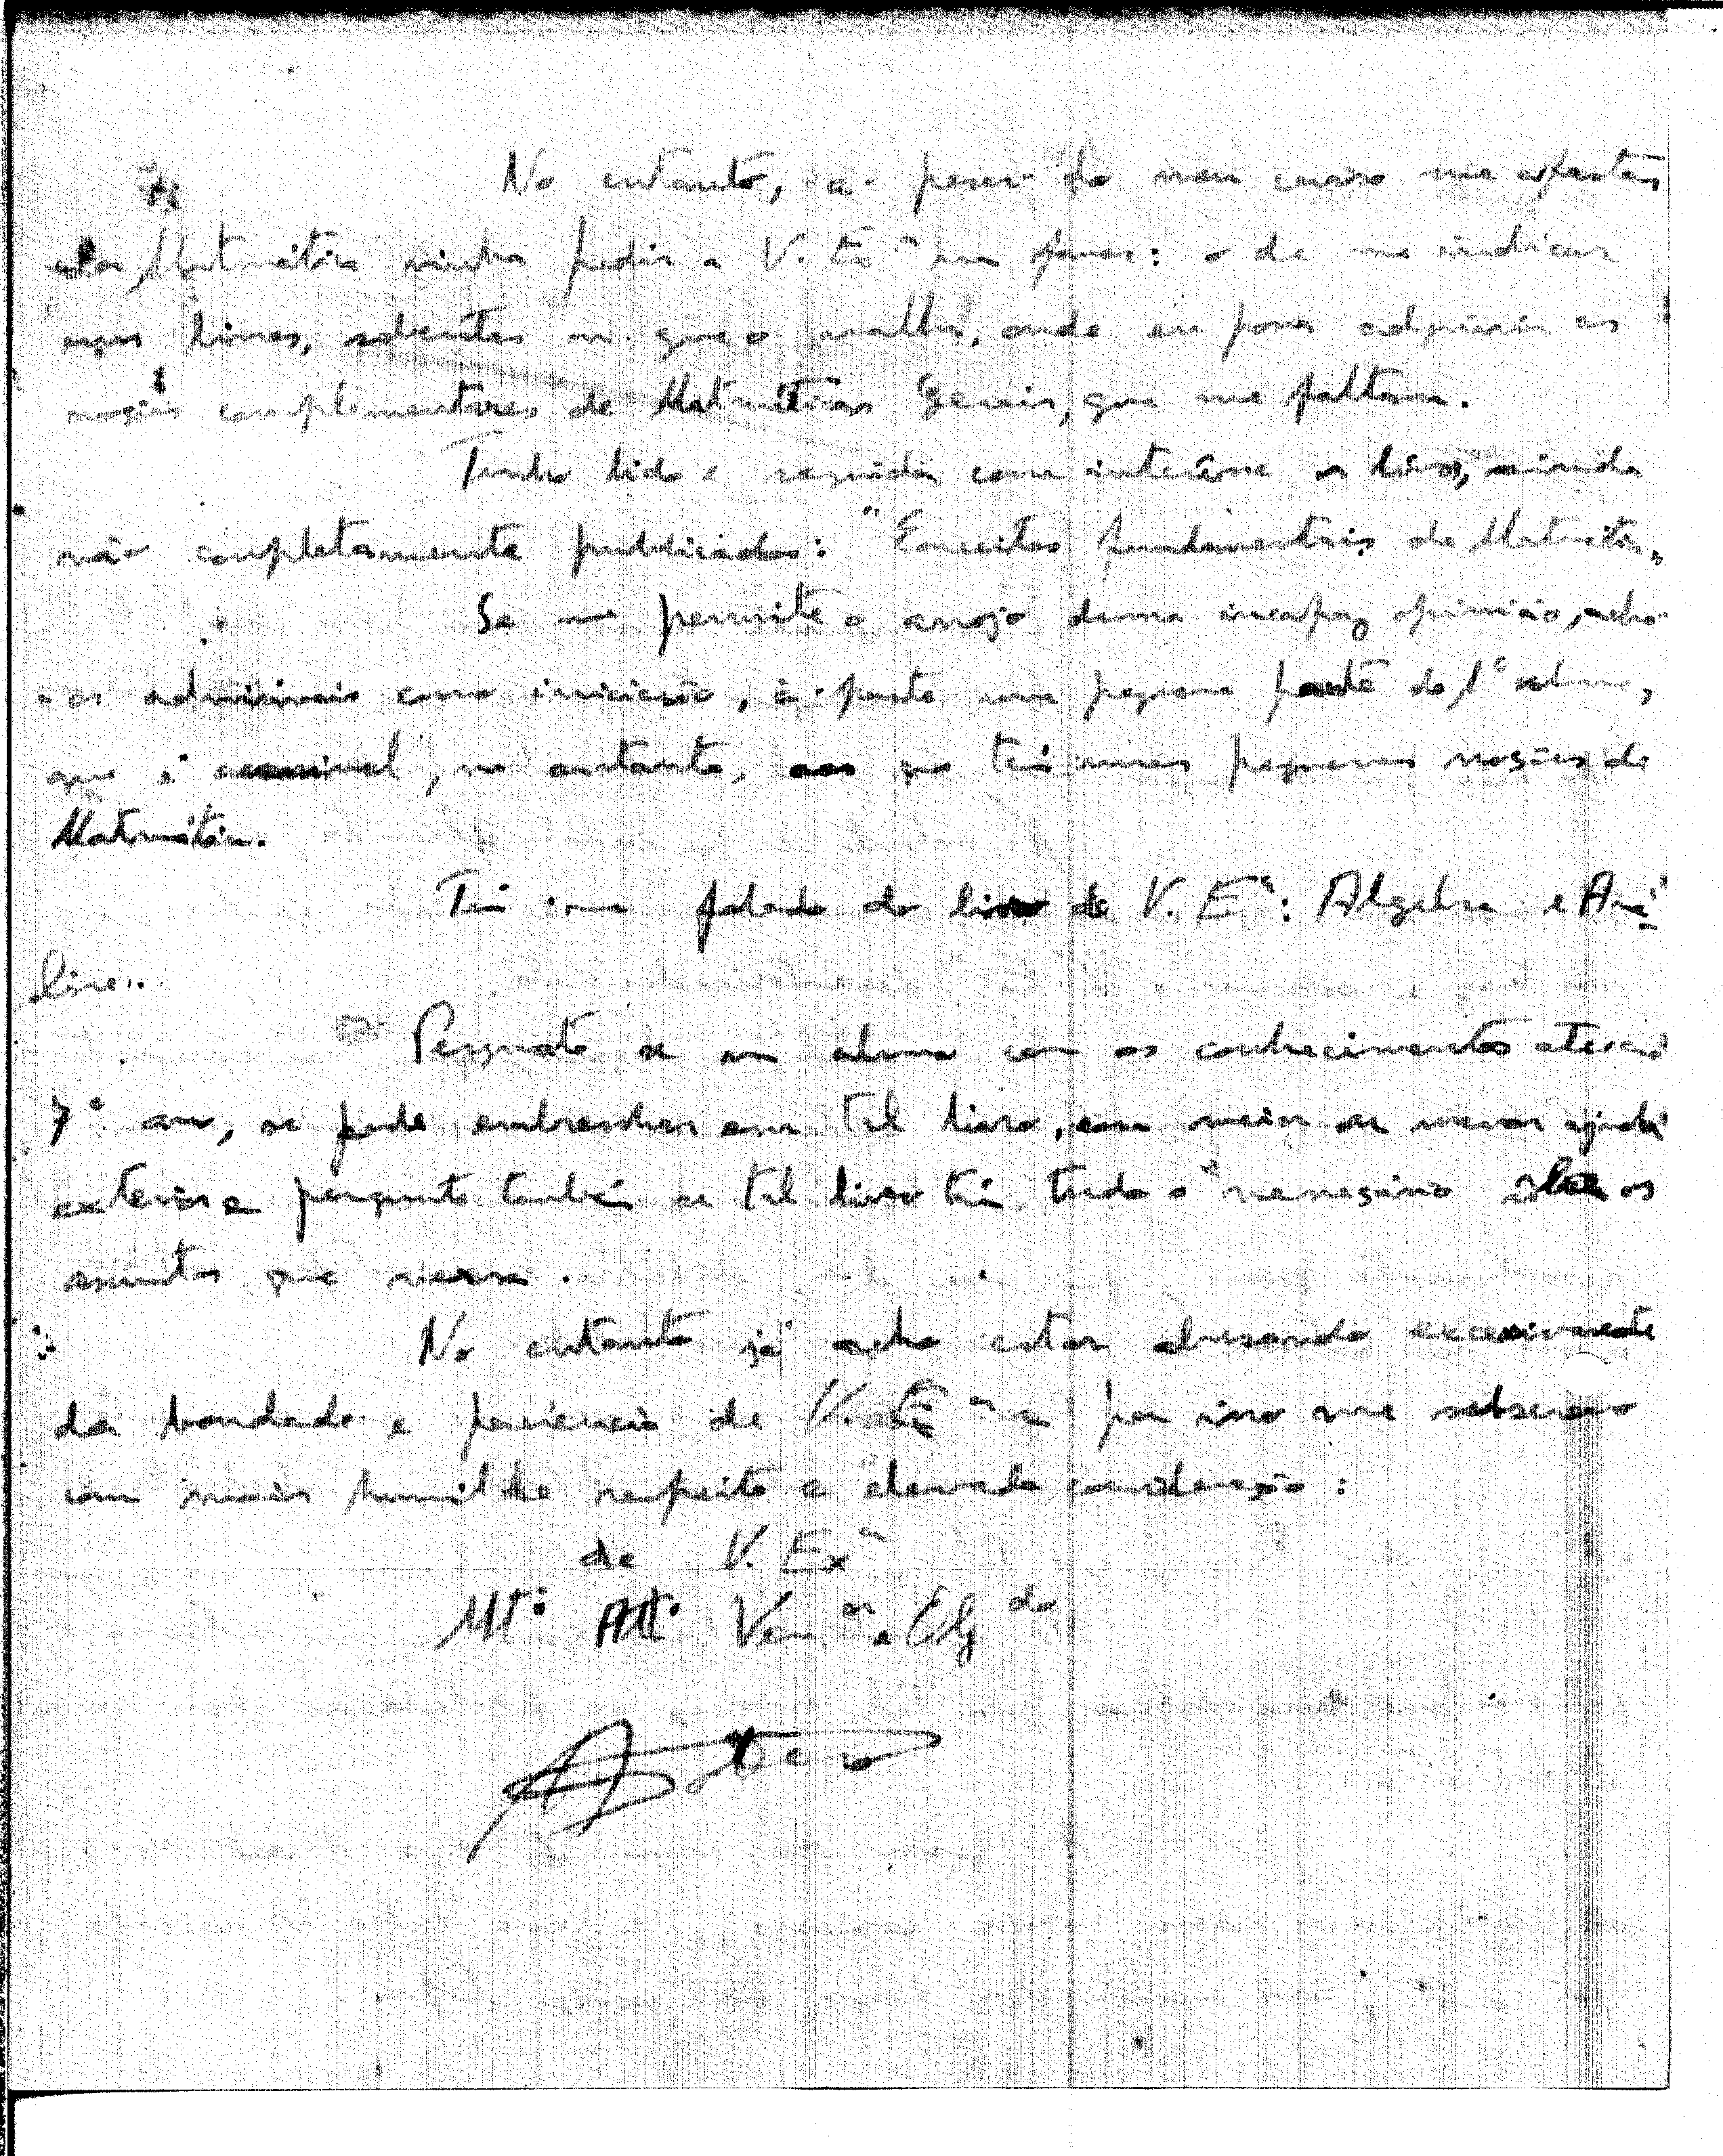 No entanto, a-pesar do meu curso me afastar
da Matemática vinha pedir a V. Exª um favor: o de me indicar
livros, onde eu possa adquirir as
noções complementares de Matemáticas Gerais, que me faltam.
Tenho lido e seguido com interêsse os livros, ainda
não completamente publicados: "Conceitos fundamentais da Matemática"
Se me permite o arrojo duma incapaz opinião, acho-
-os admiráveis como iniciação, à-parte uma pequena parte do 1º volume,
que é acessível, no entanto, aos que têm umas pequenas noções de
Matemática.
Têm-me falado do livro de V. Exª: Algebra e Aná-
lise..
Pergunto se um aluno com os conhecimentos até ao
7º ano, se pode embrenhar em tal livro, com maior ou menor ajuda
exterior e pergunto também se tal livro tem tudo o necessário sobre os
assuntos que versa.
No entanto já acho estar abusando excessivamente
da bondade e paciencia de V. Exª e por isso me subscrevo
com maior humilde respeito e elevada consideração:
de V. Exª
Mtº Attº Venºr e Obgdo
Antero